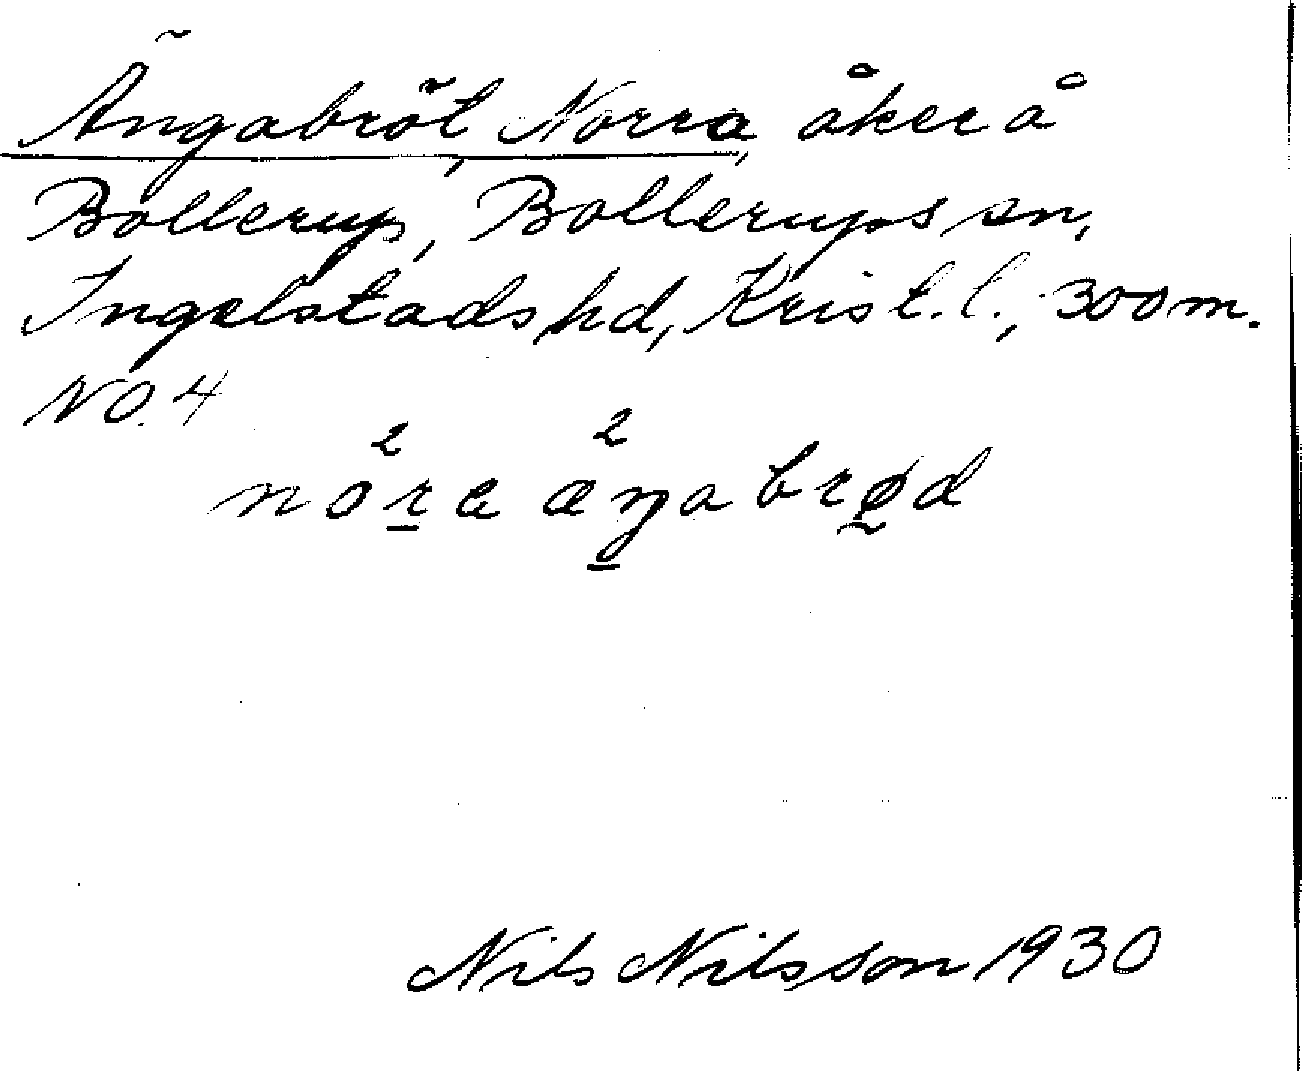 Ängabröt, Norra, åker å
Bollerup, Bollerups sn,
Ingelstads hd, Krist. l., 300 m.
NO. 4
no²ra æ²ŋabrød
Nils Nilsson 1930